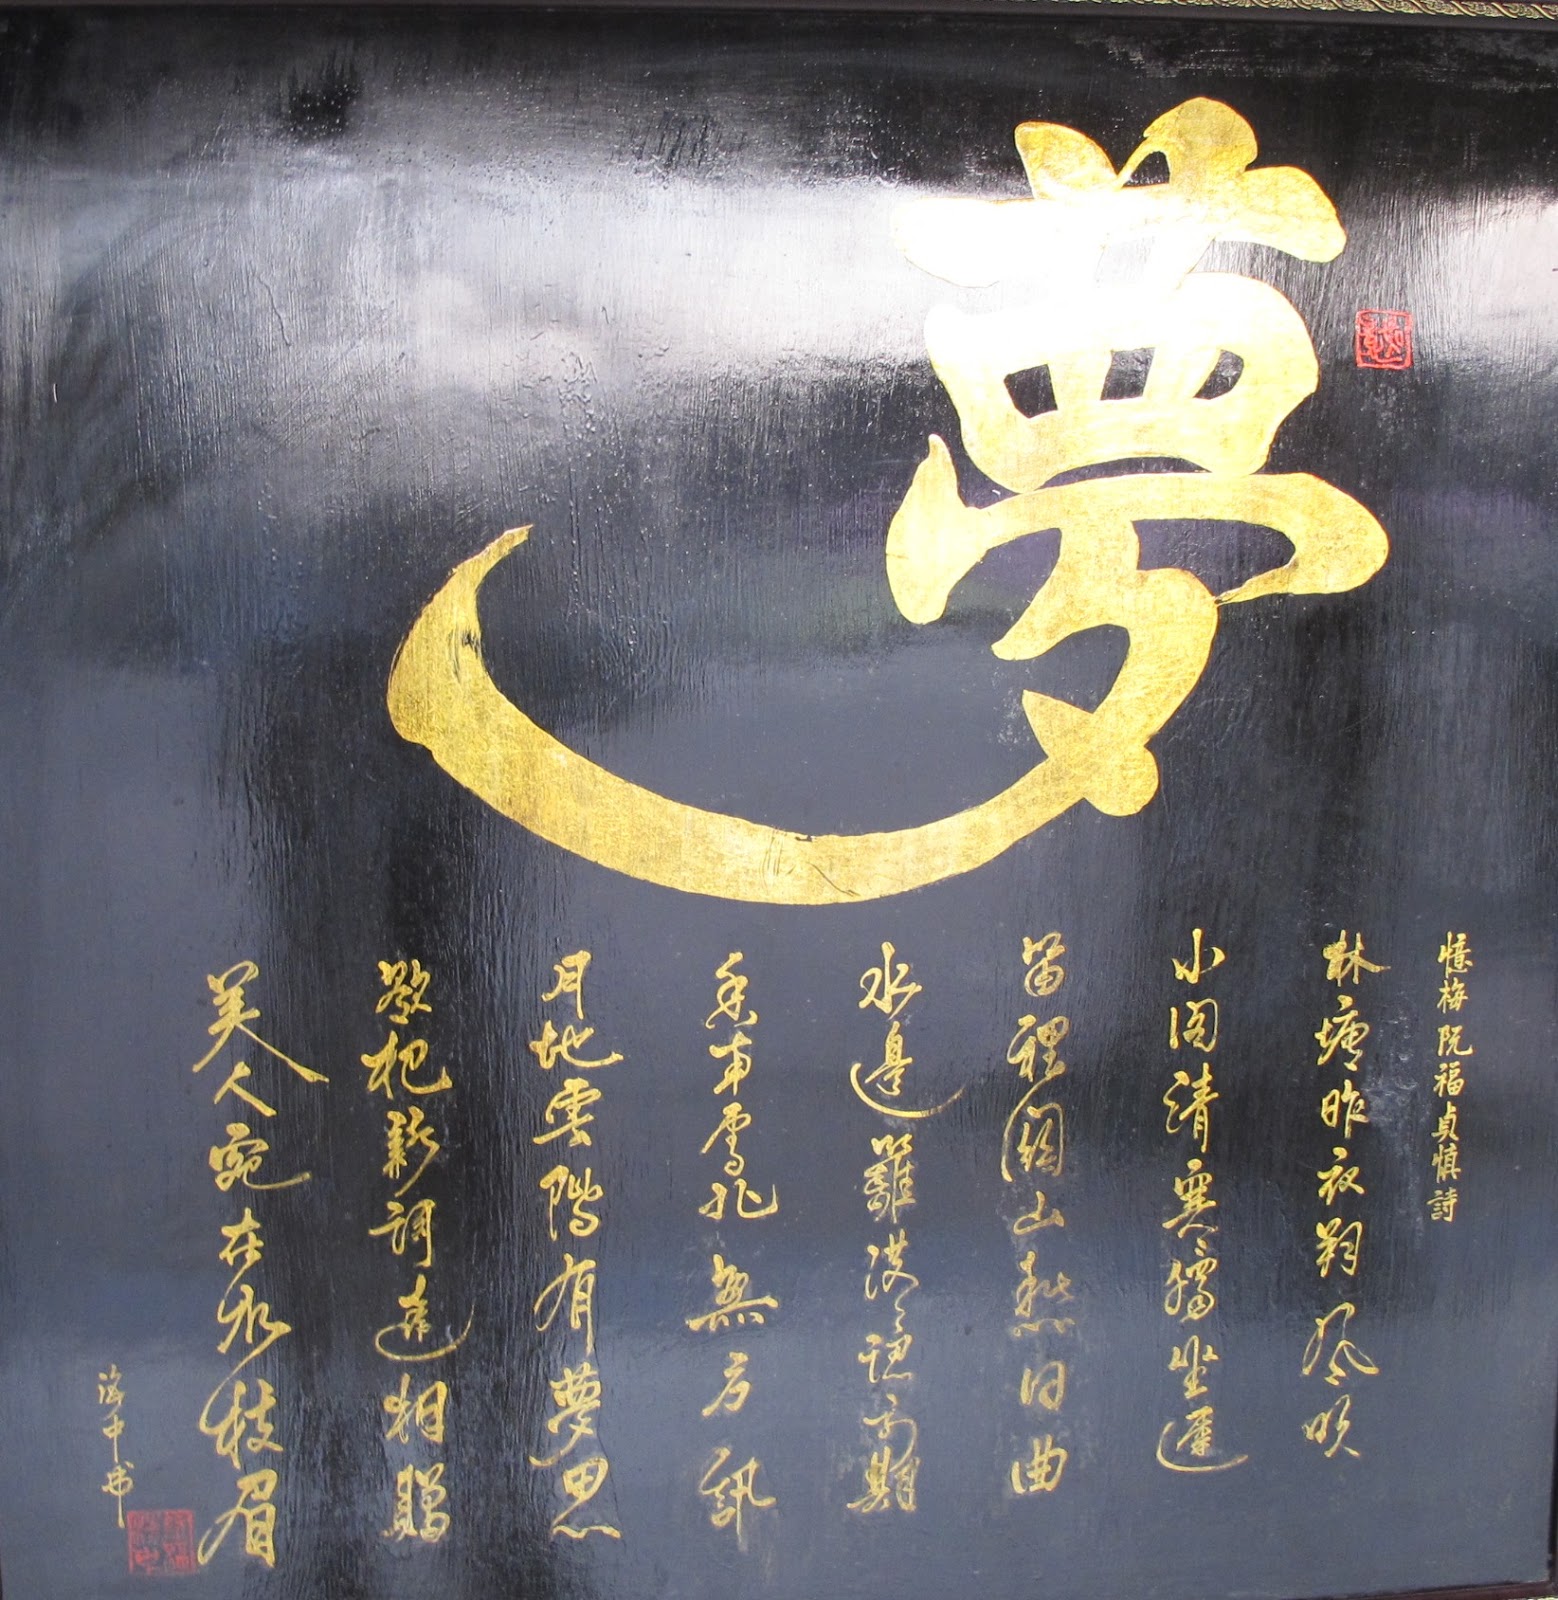 夢
憶梅 阮福貞慎詩
林塘昨夜朔風吹
小閣清寒獨坐遲
笛裡關山愁旧曲
水邊籬落認期
香南雪北無方訊
月地雲階有夢思
欲把新詞遠相贈
美人宛在水枝眉
海中書